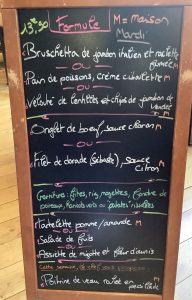 13€50 Formule M = maison
Mardi
Bruschetta de jambon italien et raclette
fermière M
OU
Pain de poissons, crème ciboulette M
OU
Velouté de lentilles et chips de jambon de
Vendée M
Onglet de boeuf, sauce
OU
Filet de dorade (sébaste), sauce
Citron M
Garniture: frites, riz, mogettes, fondue de
poireaux, haricots verts ou patates rissolées
Tartelette pomme/amande M
OU
Salade de fruits M
OU
Assiette de mignote et
Cette semaine,
Poitrine de veau rôtie en